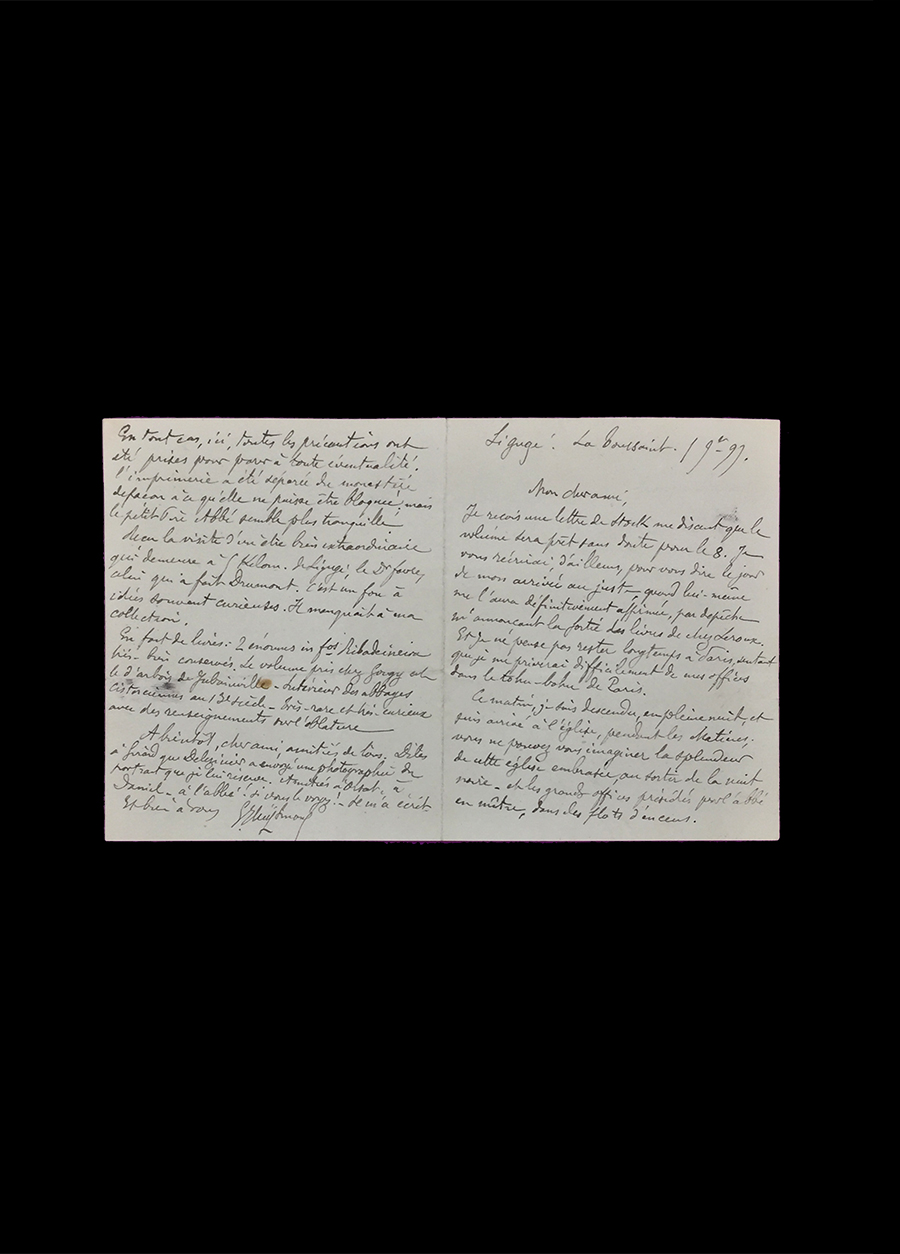 Ligugé. La Toussaint. / 9re 99.
Mon cher ami,
Je reçois une lettre de Stock me disant que le
volume sera prêt sans doute pour le 8. Je
vous récrirai, d'ailleurs, pour vous dire le jour
de mon arrivée au juste, quand lui-même
me l'aura définitivement affirmée, par dépêche
m'annonçant la sortie des livres de chez Leroux.
Et je ne pense pas rester longtemps à Paris, sentant
que je me priverai difficilement de mes offices
dans le tohu-bohu de Paris.
Ce matin, je suis descendu, en pleine nuit et
suis arrivé à l'église, pendant les Matines.
vous ne pouvez vous imaginer la splendeur
de cette église embrasée, au sortir de la nuit
noire - et les grands offices présidés par l'abbé
en mitre, dans des flots d'encens.
En tout cas, ici, toutes les précautions ont
été prises pour parer à toute éventualité.
l'imprimerie a été séparée du monastère
de façon à ce qu'elle ne puisse être bloquée, mais
le petit Père Abbé semble plus tranquille
Reçu la visite d'un être bien extraordinaire
qui demeure à 5 kilom. de Ligugé le Dr
celui qui a fait Drumont. C'est un fou à
idées souvent curieuses. Il manquait à ma
collection.
En fait de livres: 2 énormes in fos Ribadineira
très-bien conservés. Le volume pris chez Gougy est
le d'Arbois de Jubainville - Intérieur des abbayes
cisterciennes au 13e siècle - très-rare et très-curieux
avec des renseignements sur l'oblature
A bientôt, cher ami, amitiés de tous. Dites
à Girard que a envoyé une photographie du
portrait que je lui réserve. Amitiés à
- à l'abbé! si vous le voyez! - Je m'a écrit
Et bien à vous
GJHuysmans